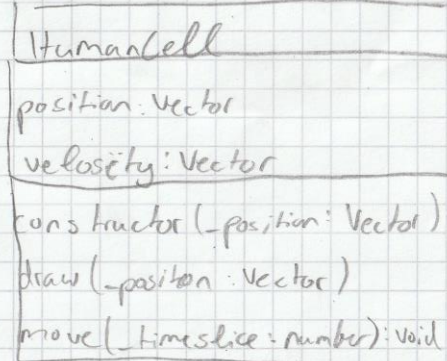 HumanCell
position: Vector
velosity: Vector
constructor(_position: Vector)
draw(_positon: Vector)
move(_timeslice: number): void